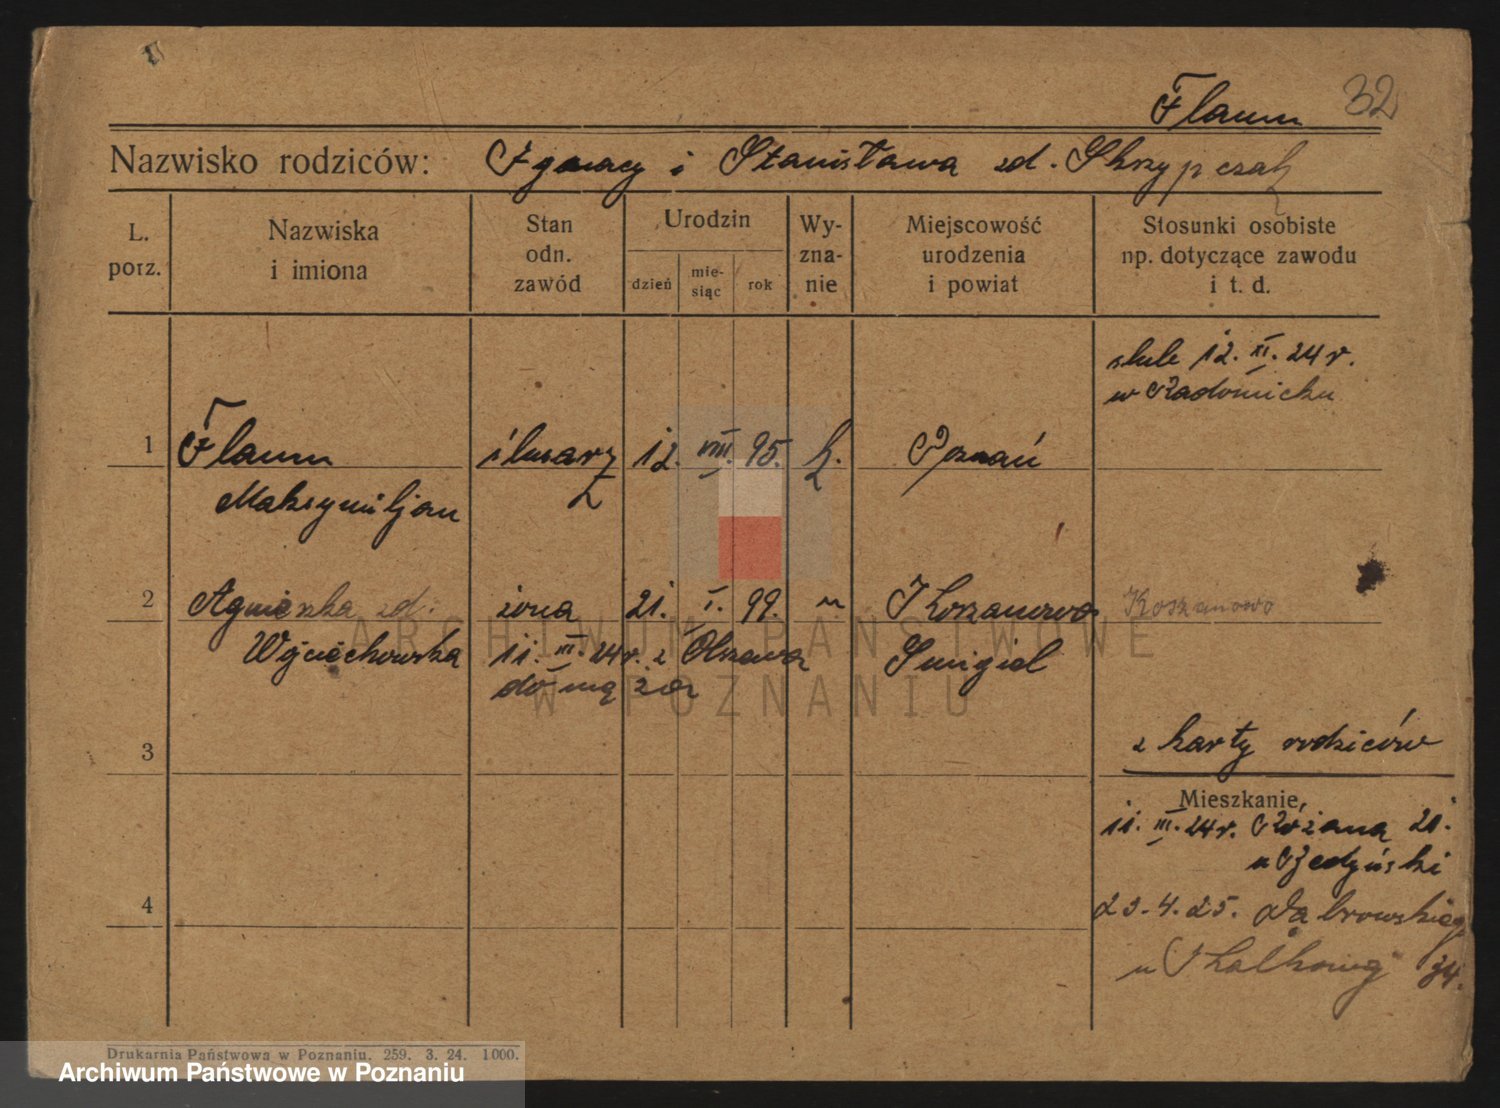 Flaum 32
Nazwisko rodziców: Ignacy i Stanisława zd. Skrzypczak
L. porz.
Nazwiska i imiona
Stan odn. zawód
Urodzin
dzień mie- siąc rok
Wy- zna- nie
Miejscowość urodzenia i powiat
Stosunki osobiste np. dotyczące zawodu i t. d.
ślub 12. XI. 24 r.
w Radomicku
1 Flaum ślusarz 12. VIII. 95. k. Poznań
Maksymiljan
2 Agnieszka zd. żona 21. I. 99. " Koszanowo Koszanowo
Wojciechowska 11. III. 24 r. z Olszewa Śmigiel
do męża
3 z karty rodziców
Mieszkanie,
11. III. 24 r. Różana 21.
u Jedyński
4 23. 4. 25. Dąbrowskiego
u 34.
ARCHIWUM PAŃSTWOWE
W POZNANIU
Drukarnia Państwowa w Poznaniu. 259. 3. 24. 1000.
Archiwum Państwowe w Poznaniu